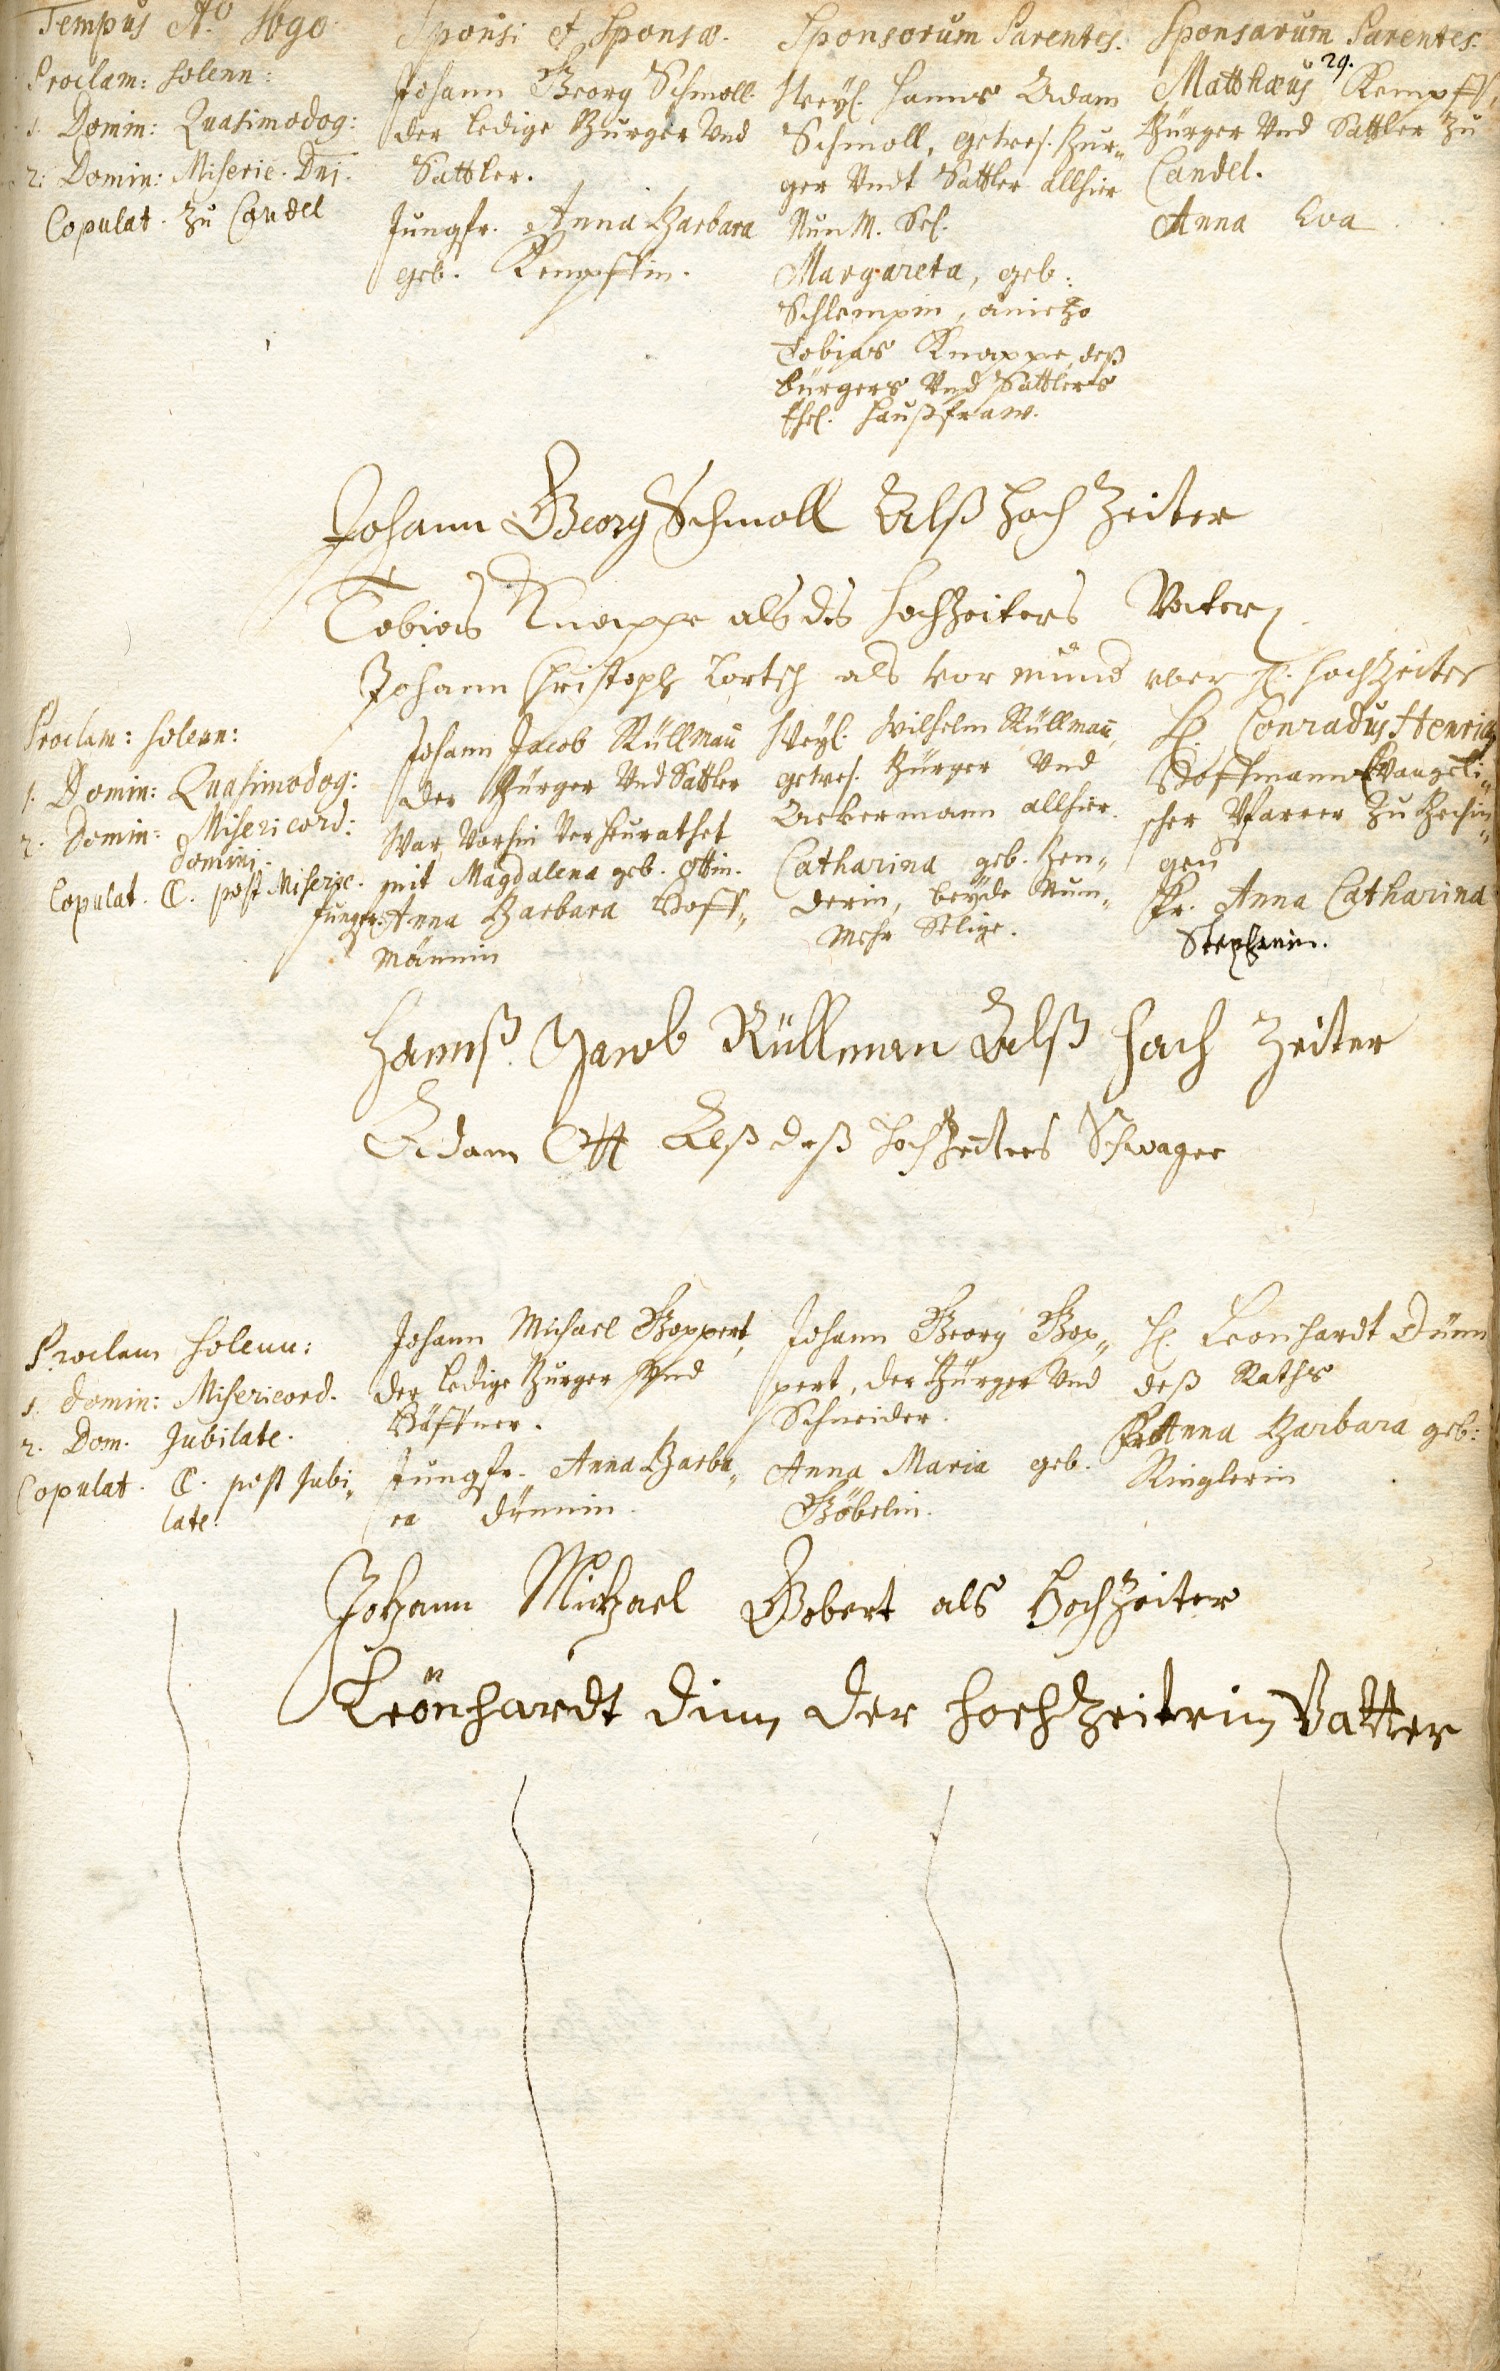 29.
Tempus Aõ 1690.
Proclam: solenn:
1. Domin: Quasimodog:
2. Domin: Miseric. Dnj.
Copulat. zu Candel
Sponsi et Sponsæ.
Johann Georg Schmoll
der ledige Burger Vnd
Sattler.
Jungfr. Anna Barbara
geb. Kempffin.
Sponsorum Parentes.
Weyl. Hanns Adam
Schmoll, gewes. Bur„
ger Vndt Sattler allhier
Nun M. Sel.
Margareta, geb:
Schlempin, anietzo
Tobias Knappe, deß
bürgers Vnd Sattlers
Ehel. Haußfraw.
Sponsarum Parentes.
Matthæus Kempff,
Bürger Vnd Sattler zu
Candel.
Anna Eva
Johann Georg Schmoll Alß hoch Zeiter
Tobias Knappe als des hochZeiters Vater
Johann Christoph Lortsch als vor mund vber H. hochZeiter
Proclam: solenn:
1. Domin: Quasimodog:
2. Domin: Misericord:
Dominj.
Copulat. C. post Miseric.
Johann Jacob Rüllmañ
der Bürger Vnd Sattler
War Vorhin Verheurathet
mit Magdalena geb. Ottin.
Jungfr. Anna Barbara Hoff„
männin
Weyl. Wilhelm Rüllmañ,
gewes. Bürger Vnd
Ackermann allhier.
Catharina geb. Ben„
derin, beyde Nun„
Mehr Selige.
H. Conradus Henric9
Hoffmann Evangeli„
scher Pfarrer zu
gen
Fr. Anna Catharina
Stephanin.
Hannß Jacob Rüllman Alß hoch Zeiter
Adam Ott Alß deß hochZeiters Schwager
Proclam solenn:
1. Domin: Misericord.
2. Dom. Jubilate.
Copulat. C. post Jubi„
late.
Johann Michael Goppert,
der ledige Burger Vnd
Häffner.
Jungfr. Anna Barba„
ra Dünnin.
Johann Georg Gop„
pert, der Bürger Vnd
Schneider.
Anna Maria geb.
Göbelin.
H. Leonhardt Dünn
deß Raths
Fr. Anna Barbara geb:
Ringlerin
Johann Michael Gobert als HochZeiter
Leonhardt Dinn der hochZeiterin Vatter